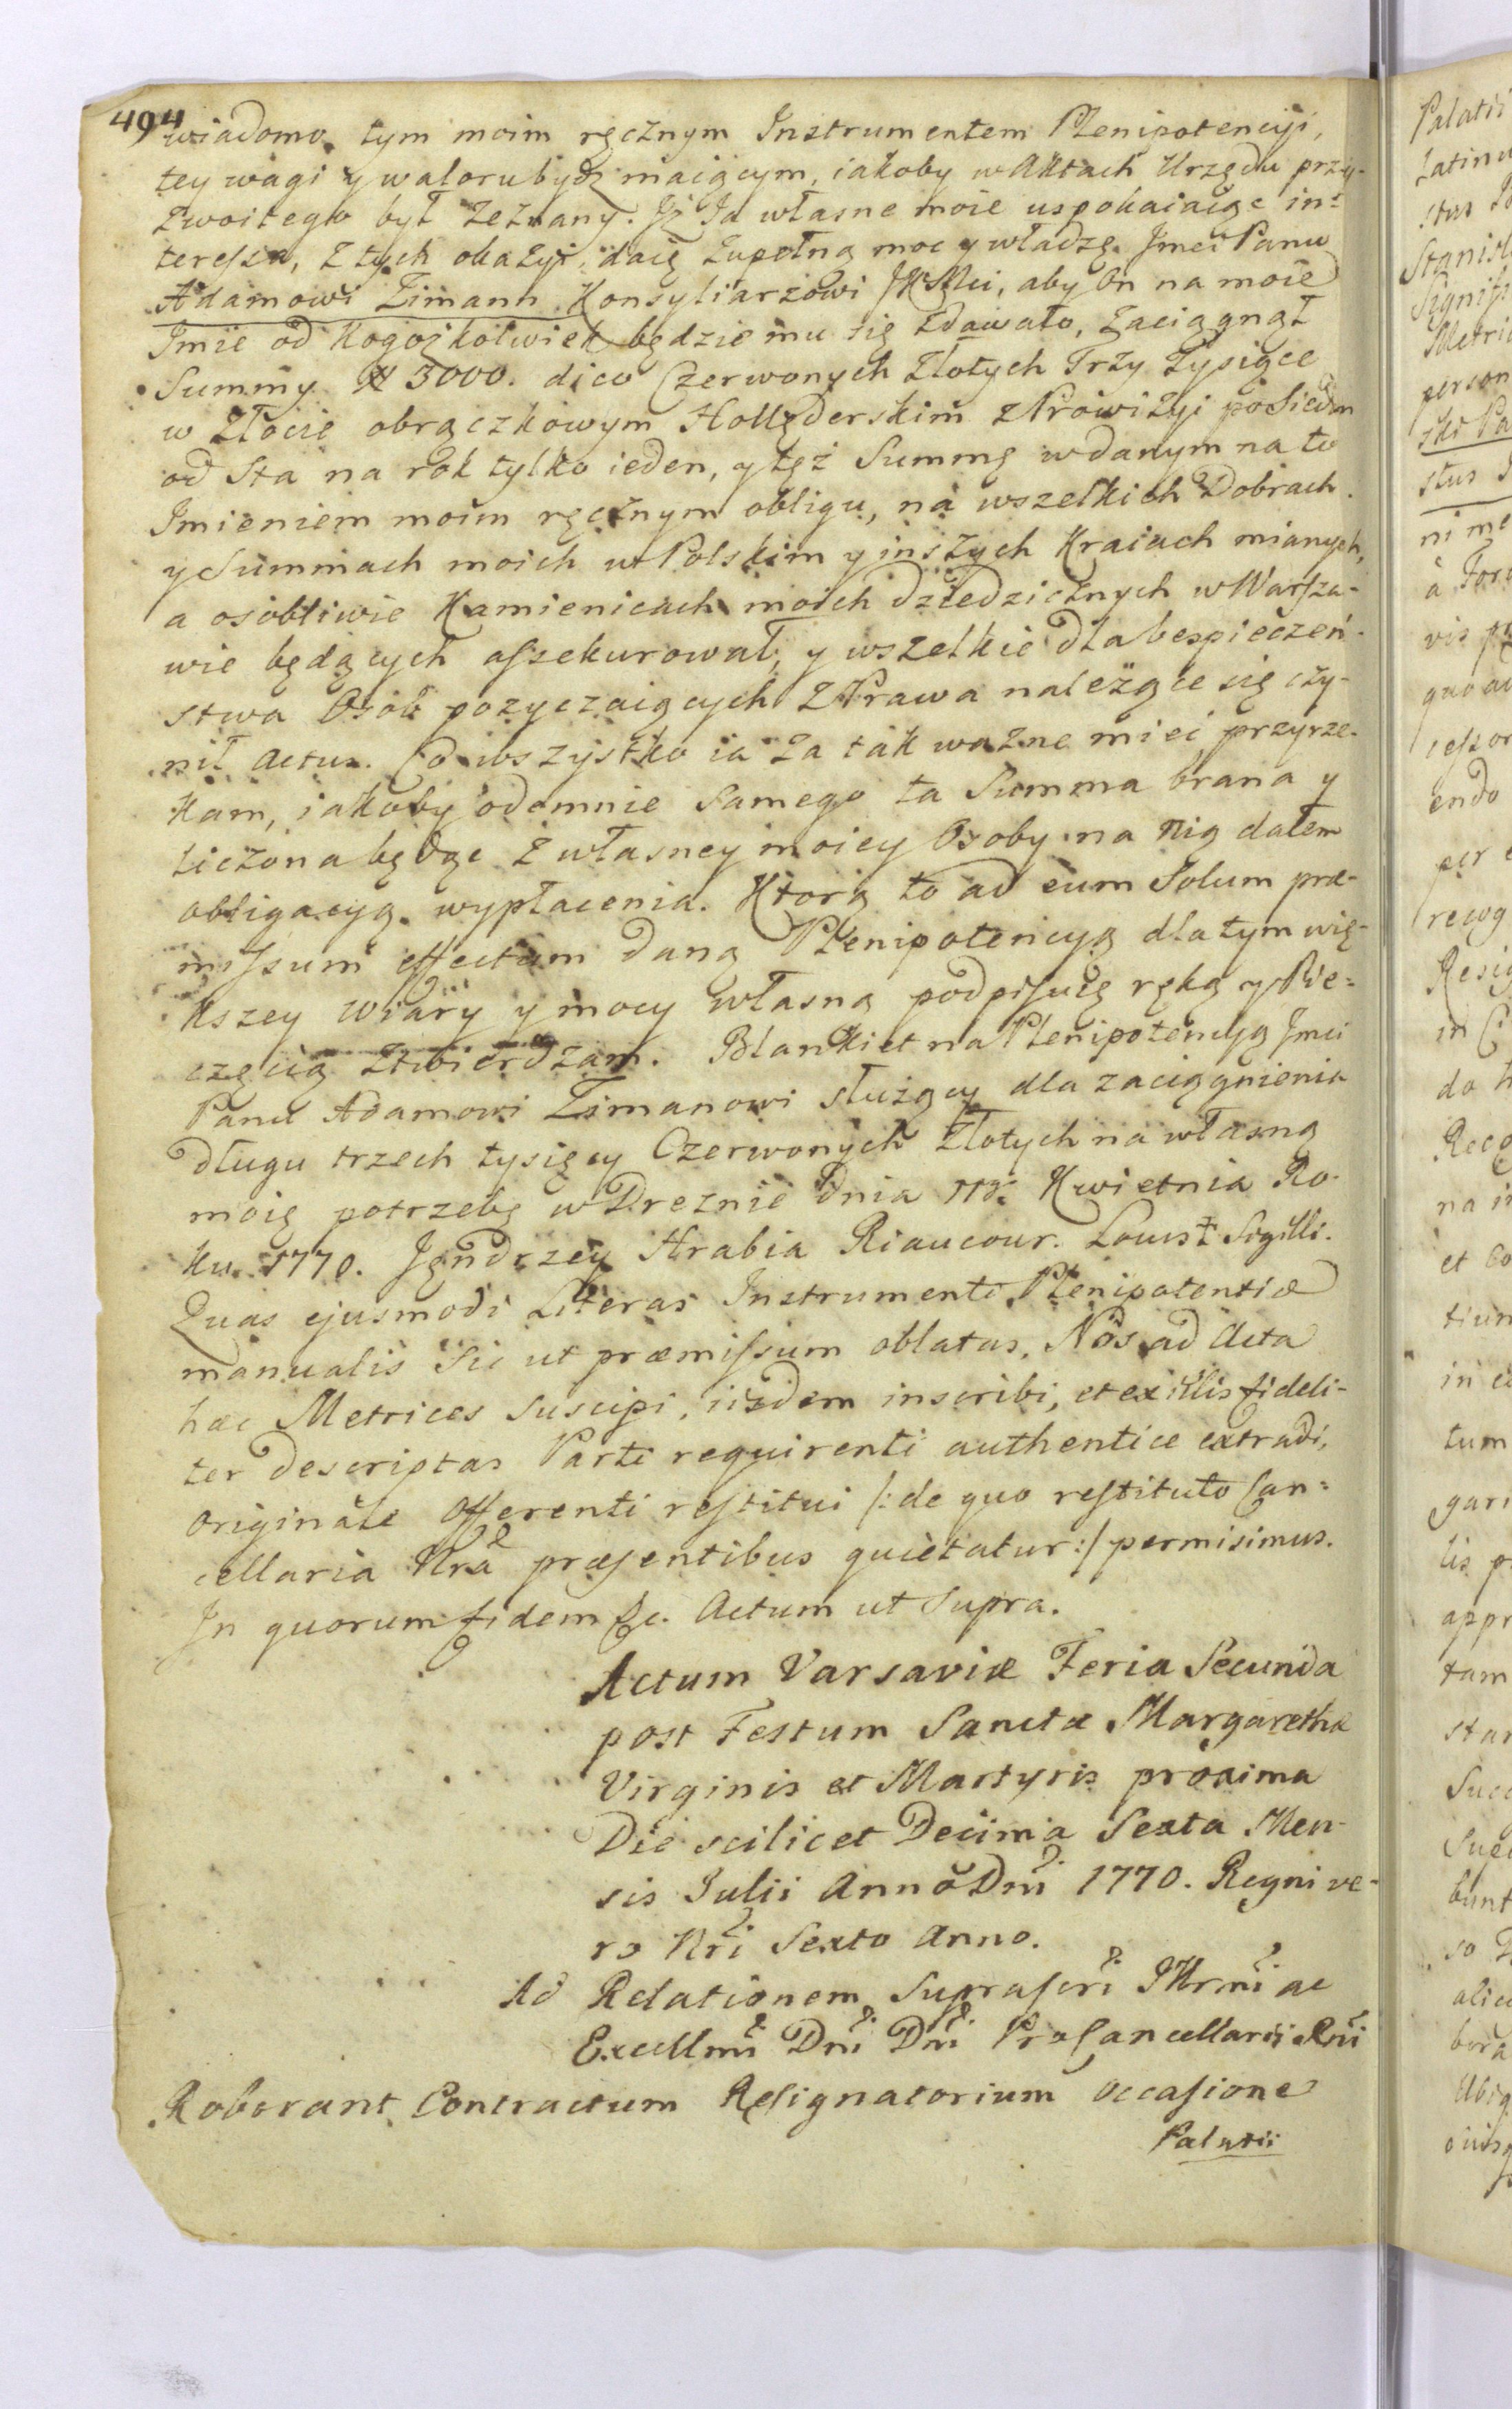 494
wiadomo. tym moim ręcznym Instrumentem Plenipotencyi,
tey wagi y waloru bydź maiącym, iakoby w Aktach Urzędu przy-
zwoitego był zeznany. Iż Ja własne moie uspokaiaiąc in-
teressa, z tych okazyi, daię zupełną moc y władzę Jmci Panu
Adamowi Zimann Konsyliarzowi JKMci, aby On na moie
Imie od kogożkolwiek będzie mu się zdawało, zaciągnął
Summy # 3000. dico Czerwonych Złotych Trzy Tysiące
w Złocie obrączkowym Hollęderskim z Prowizyi po Siedm
od Sta na rok tylko ieden, y tęż Summę w danym na to
Imieniem moim ręcznym obligu, na wszelkich Dobrach
y Summach moich w Polskim y inszych Kraiach mianych,
a osobliwie Kamienicach moich dziedzicznych w Warsza-
wie będących assekurował, y wszelkie dla bespieczeń-
stwa Osób pozyczaiących z Prawa należące się czy-
nił actus. Co wszystko ia za tak ważne mieć przyrze-
kam, iakoby odemnie samego ta Summa brana y
liczona będąc z własney moiey Osoby na nią dałem
obligacyą wypłacenia. Którą to ad eum Solum præ-
missum effectum daną Plenipotencyą dla tym wię-
kszey wiary y mocy własną podpisuię ręką y Pie-
częcią ztwierdzam. Blankiet na Plenipotencyą Jmci
Panu Adamowi Zimanowi służący dla zaciągnienia
długu trzech tysięcy Czerwonych Złotych na własną
moię potrzebę w Dreznie dnia 11g. Kwietnia Ro-
ku 1770. Jędrzey Hrabia Riaucour. Locus Sigilli.
Quas ejusmodi Literas Instrumenti Plenipotentiæ
manualis Sic ut præmissum oblatas, Nos ad Acta
hæc Metrices suscipi, iisdem inscribi, et ex illis fideli-
ter descriptas Parti requirenti authentice extradi,
Originale Offerenti restitui /: de quo restituto Can-
cellaria Nra præsentibus quietatur :/ permisimus.
In quorum fidem &c. Actum ut supra.
Actum Varsaviæ Feria Secunda
post Festum Sanctæ Margarethæ
Virginis et Martyris proxima
Die scilicet Decima Sexta Men-
sis Julii Anno Dni 1770. Regni ve-
ro Nri Sexto Anno.
Ad Relationem suprascri Illrmi ac
Excellmi Dni Dni ProCancellarii Rni
Roborant Contractum Resignatorium Occasione
Palatii